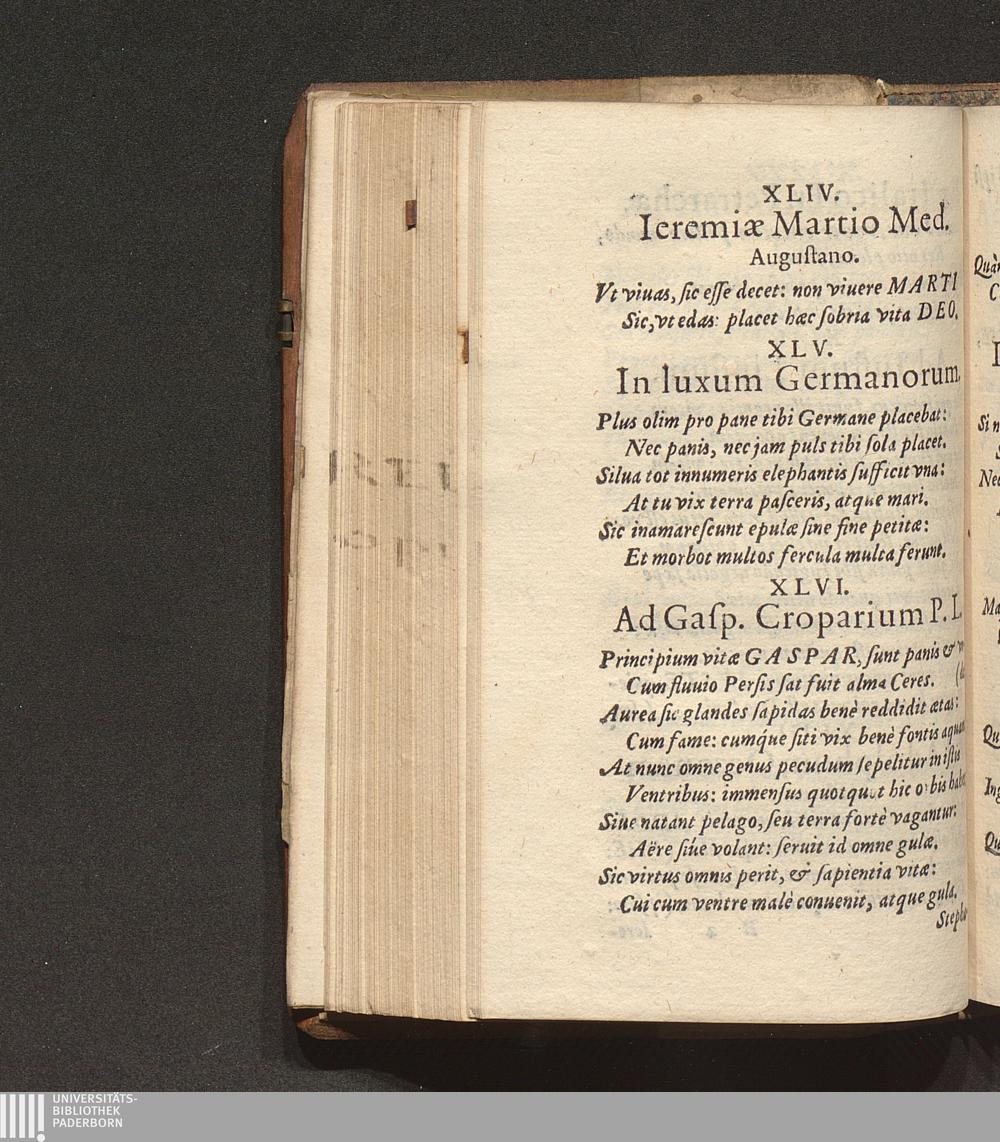 XLIV.
Ieremiæ Martio Med.
Auguſtano.
Vt viuas, ſic eſſe decet: non viuere MARTI
Sic, vt edas: placet hæc ſobria vita DEO.
XLV.
In luxum Germanorum.
Plus olim pro pane tibi Germane placebat:
Nec panis, nec jam puls tibi ſola placet.
Silua tot innumeris elephantis ſufficit vna:
At tu vix terra paſceris, atque mari.
Sic inamareſcunt epulæ ſine fine petitæ:
Et morbot multos fercula multa ferunt.
XLVI.
Ad Gaſp. Croparium P. L
Principium vitæ GASPAR, ſunt panis &
Cum fluuio Perſis ſat fuit alma Ceres.
Aurea ſic glandes ſapidas benè reddidit ætas:
Cum fame: cumq́ue ſiti vix benè fontis aquam
At nunc omne genus pecudum ſepelitur in iſtis
Ventribus: immenſus quotquot hic orbis habet
Siue natant pelago, ſeu terra fortè vagantur:
Aëre ſiúe volant: ſeruit id omne gulæ.
Sic virtus omnis perit, & ſapientia vitæ:
Cui cum ventre malè conuenit, atque gula.
Stepha
Quàm
C
I
Si n
S
Nec
Ma
Qu
Ing
Qu
UNIVERSITÄTS-
BIBLIOTHEK
PADERBORN